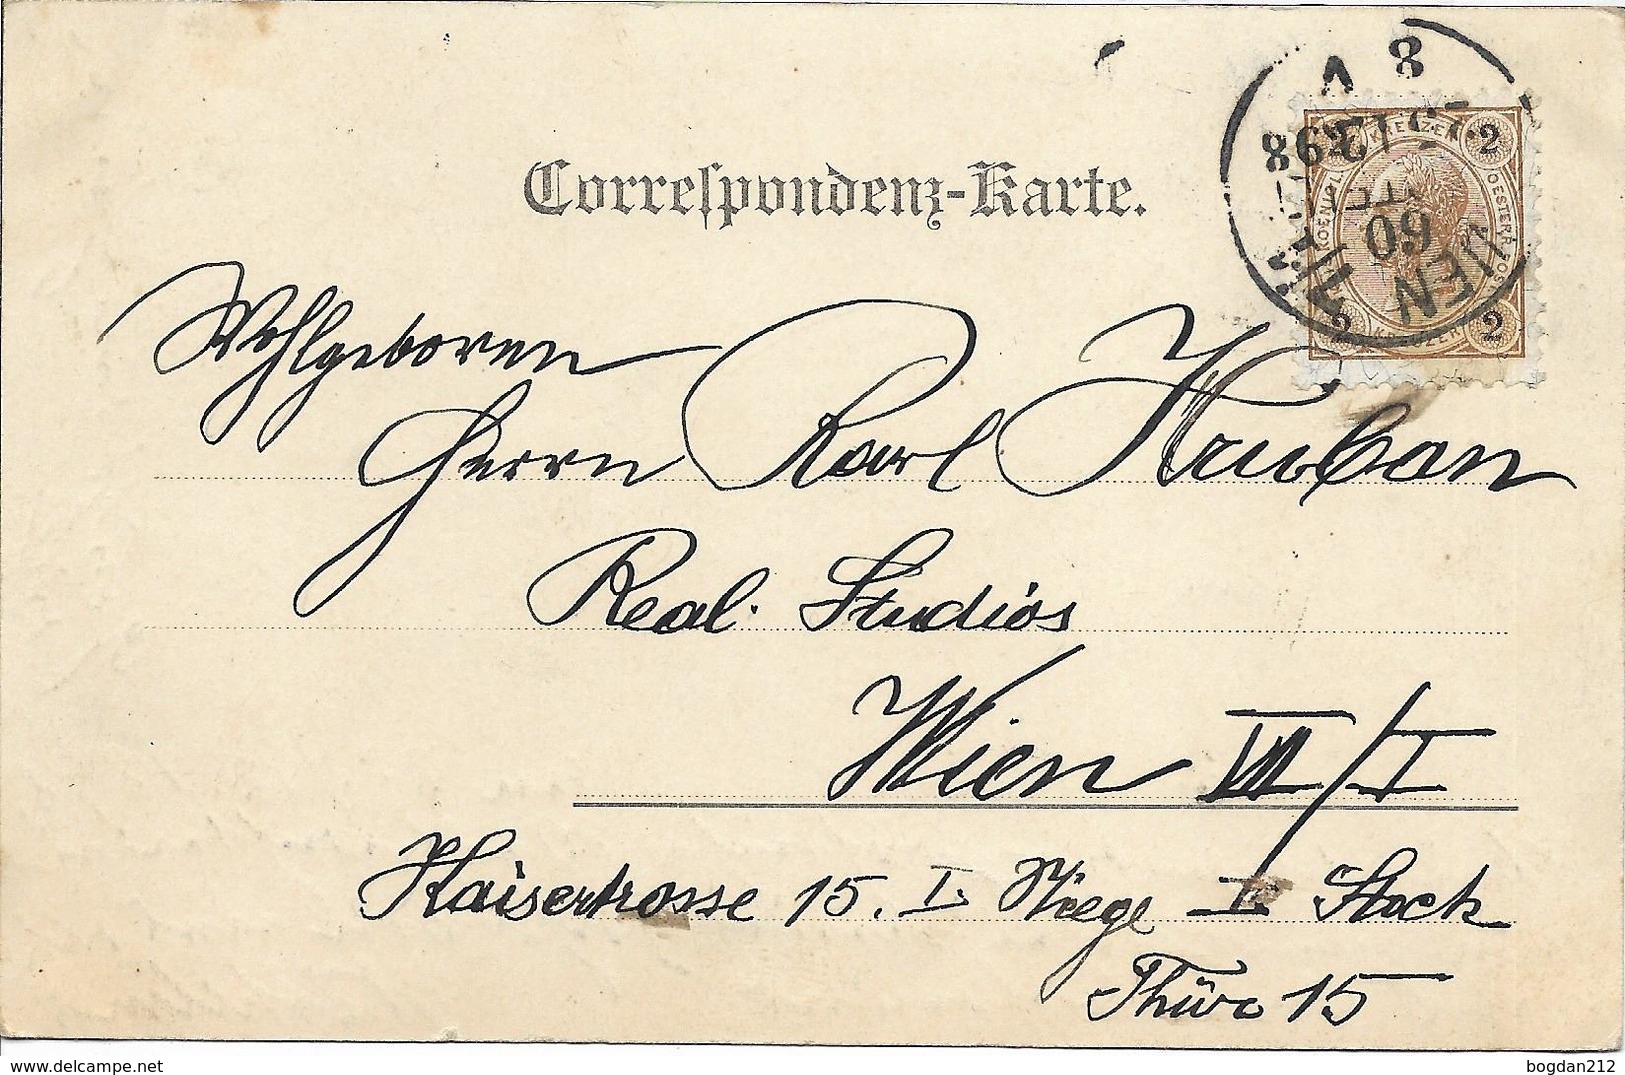 Correspondenz-Karte.
Wohlgeboren
Herrn Karl Hruban
Real. Studios
Wien VII/I
Kaiserstrasse 15. I. Stiege I. Stock
Thüre 15
2 KREUZER 2
WIEN
60
98
8 V
2 2
delcampe.net
bogdan212